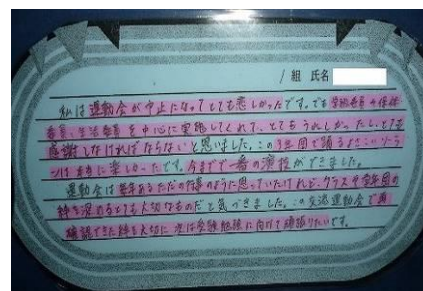 1組 氏名
私は運動会が中止になってとても悲しかったです。でも学級委員や保体
委員、生活委員を中心に実施してくれて、とてもうれしかったし、とても
感謝しなければならないと思いました。この3年団で踊るよさこいソーラ
ンは本当に楽しかったです。今までで一番の演技ができました。
運動会は毎年あるただの行事のように思っていたけれど、クラスや学年団の
絆を深めるとても大切なものだと気づきました。この交流運動会で再
確認できた絆を大切に次は受験勉強に向けて頑張りたいです。